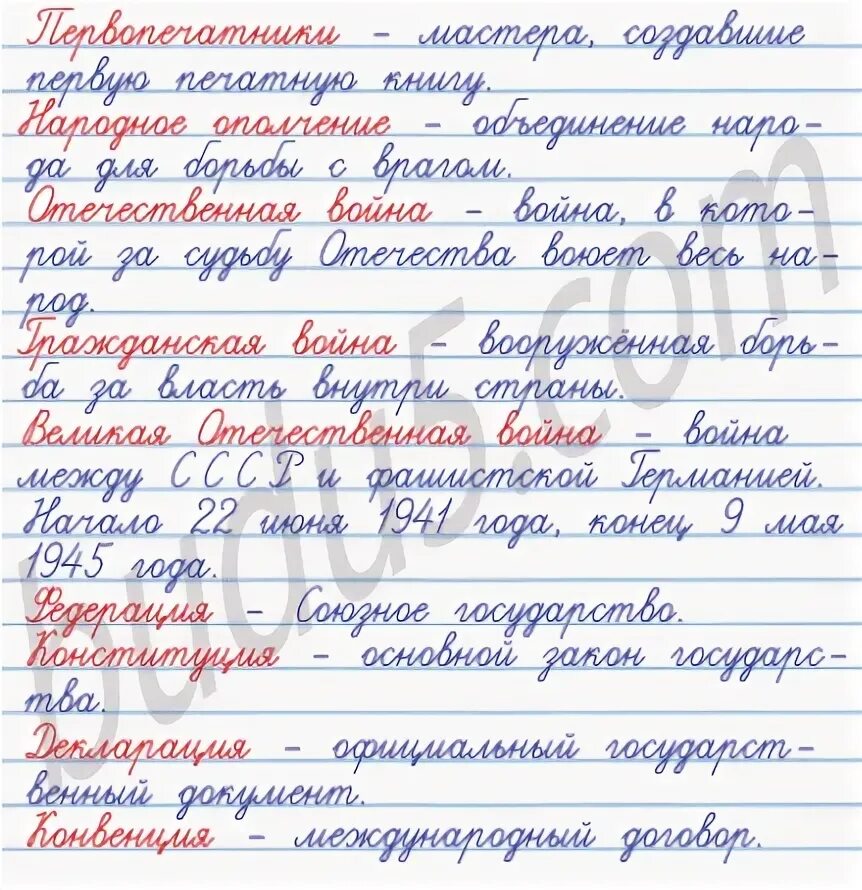 Первопечатники – мастера, создавшие
первую печатную книгу.
Народное ополчение – объединение наро-
да для борьбы с врагом.
Отечественная война – война, в кото-
рой за судьбу Отечества воюет весь на-
род.
Гражданская война – вооружённая борь-
ба за власть внутри страны.
Великая Отечественная война – война
между СССР и фашистской Германией.
Начало 22 июня 1941 года, конец 9 мая
1945 года.
Федерация – Союзное государство.
Конституция – основной закон государс-
тва.
Декларация – официальный государст-
венный документ.
Конвенция – международный договор.
budu5.com